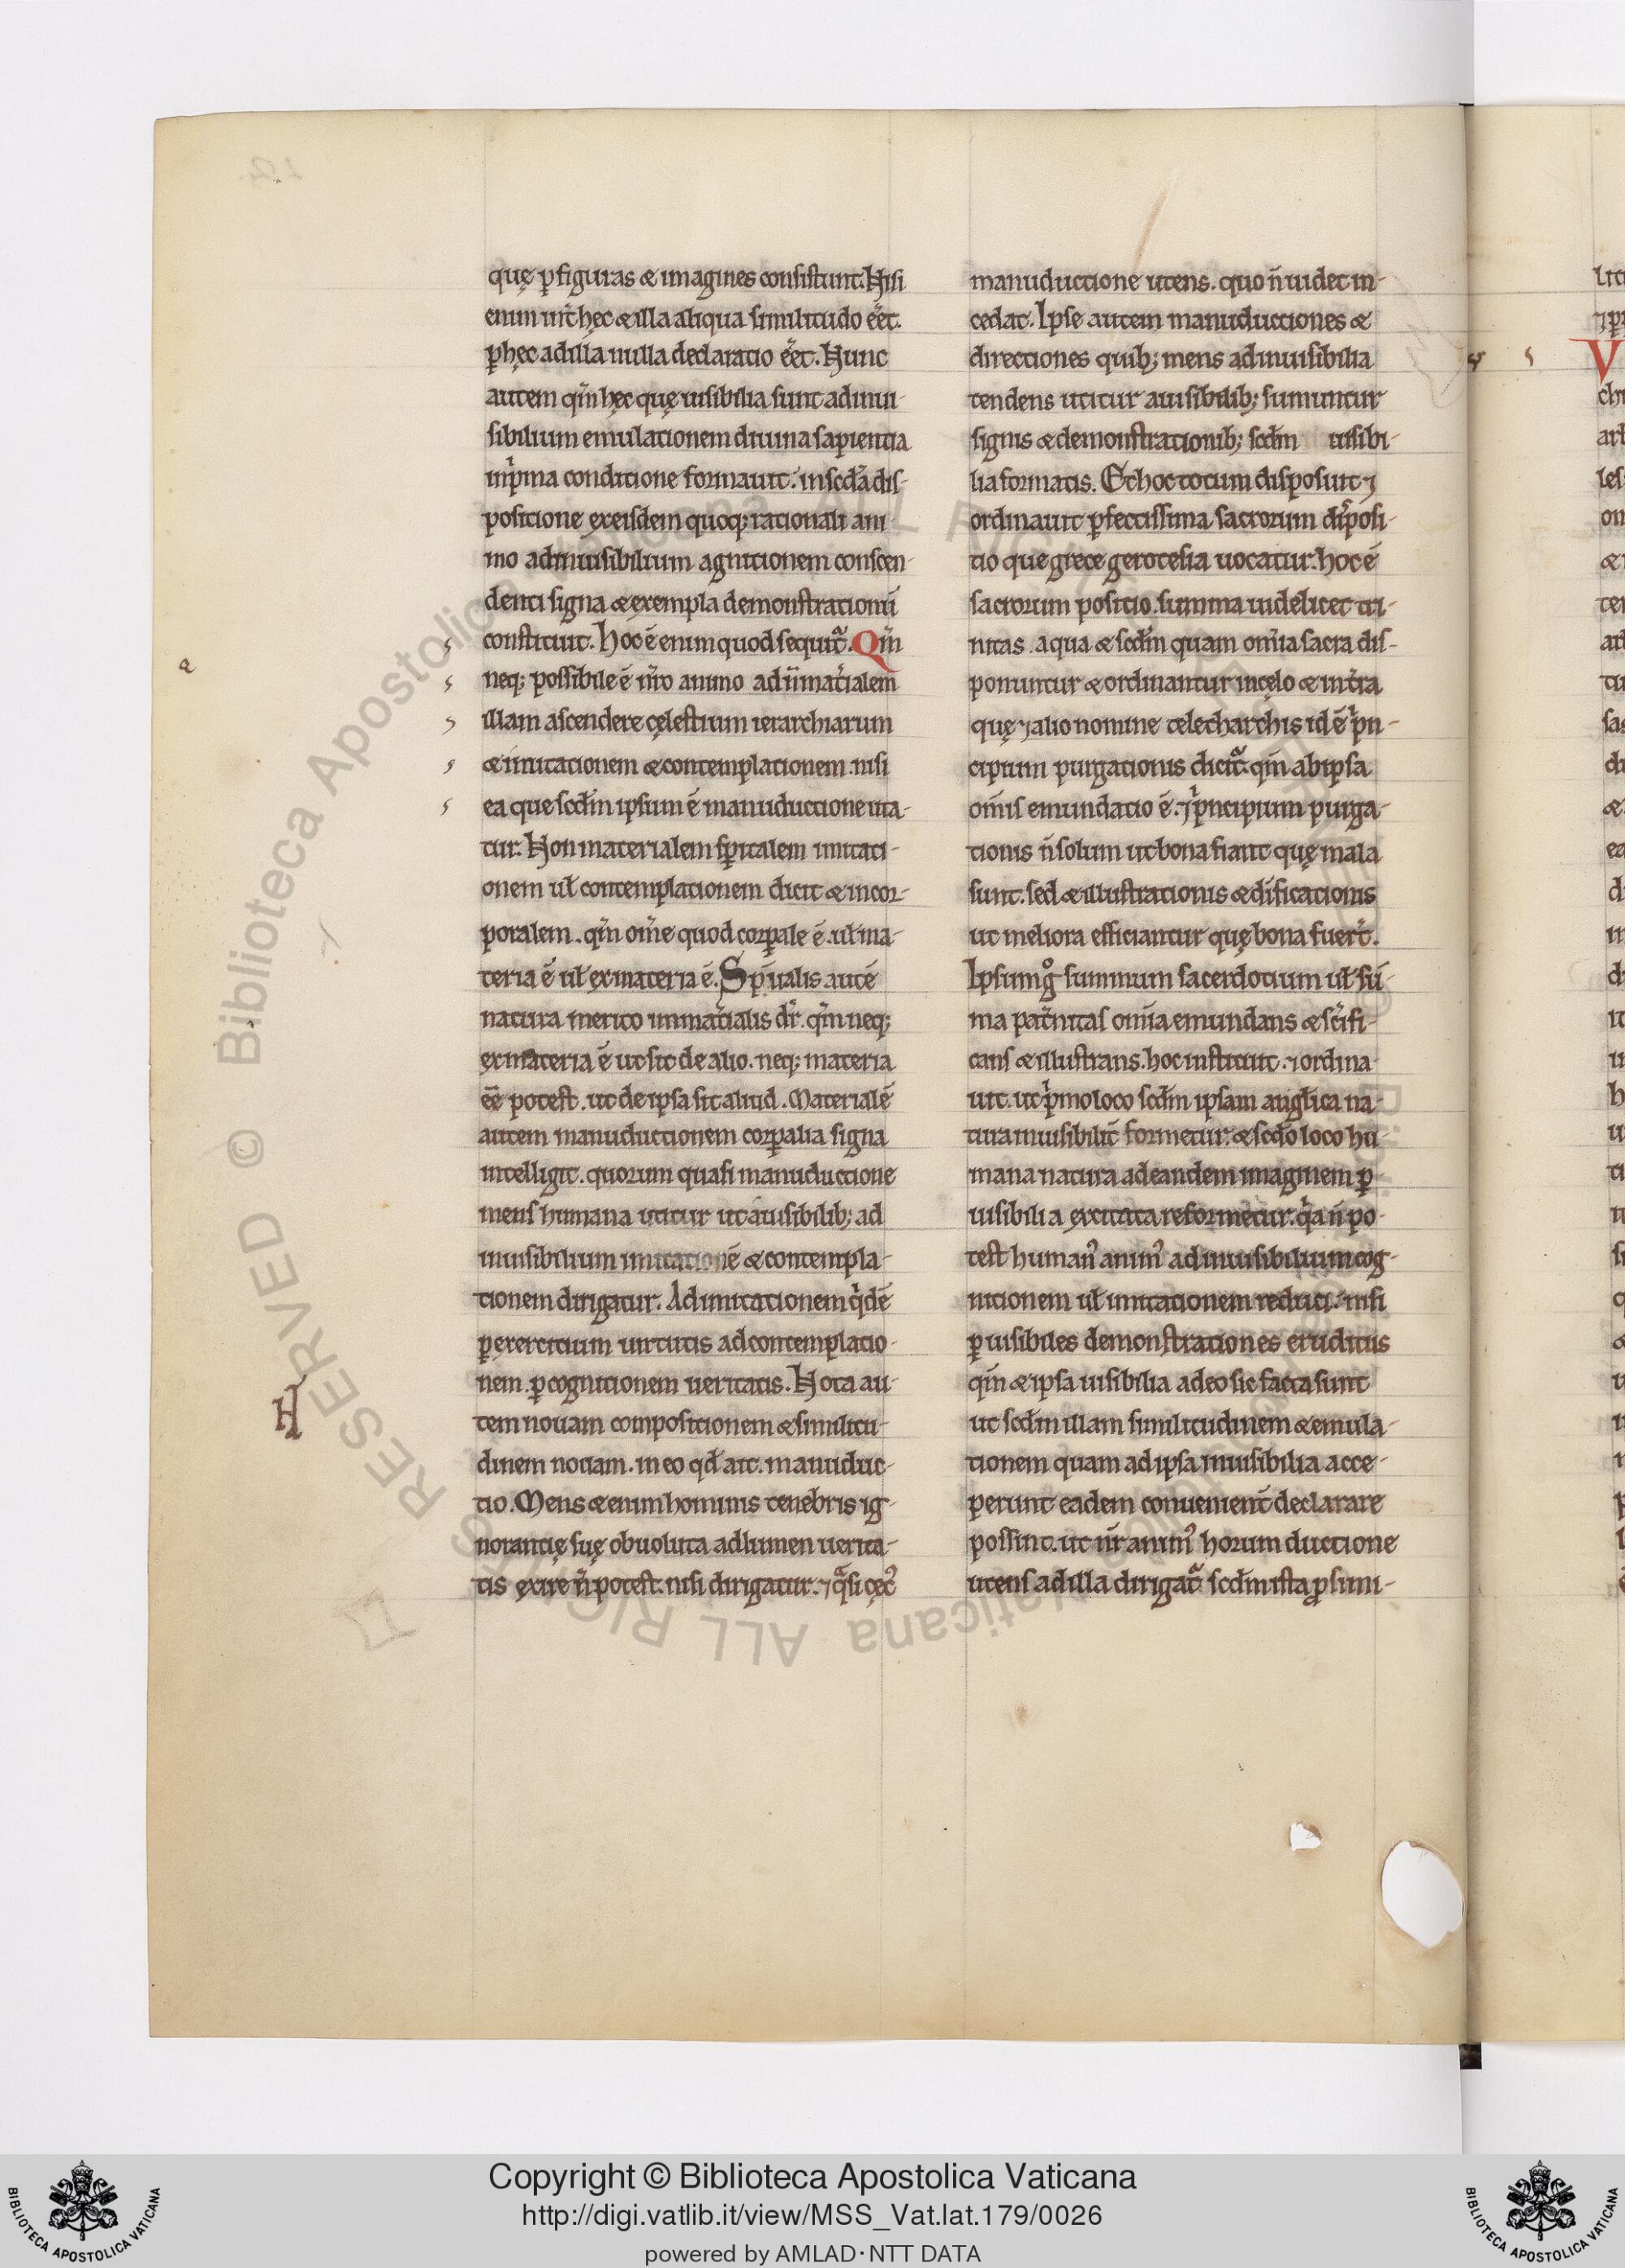 quę ꝑ figuras & imagines consistunt. Nisi
enim int̄ hęc & illa aliqua similitudo eēt.
ꝑ hęc ad illa nulla declaratio eēt. Nunc
autem qm̄ hęc quę uisibilia sunt ad inui-
sibilium emulationem diuina sapientia
in pͥma conditione formauit. in scd̄a dis-
positione ex eisdem quoq; rationali ani-
mo ad inuisibilium agnitionem conscen-
denti signa & exempla demonstrationū
constituit. Hoc ē enim quod sequit᷑. Qm̄
neq; possibile ē nr̄o animo ad īmat̄ialem
illam ascendere cęlestium ierarchiarum
& imitationem & contemplationem. nisi
ea que scd̄m ipsum ē manuductione uta-
tur. Non materialem sp̄italem imitati-
onem ul̄ contemplationem dicit & incor-
poralem. qm̄ om̄e quod corꝑale ē. ul̄ ma-
teria ē ul̄ ex materia ē. Sp̄ualis autē
natura merito immat̄ialis dr̄. qm̄ neq;
ex materia ē ut sit de alio. neq; materia
eē potest. ut de ipsa sit aliud. Materialē
autem manuductionem corꝑalia signa
intelligit. quorum quasi manuductione
mens humana utitur ut a uisibilib; ad
inuisibilium imitationē & contempla-
tionem dirigatur. Ad imitationem qͥdē
ꝑ exercitium uirtutis ad contemplatio-
nem. ꝑ cognitionem ueritatis. Nota au-
tem nouam compositionem & similitu-
dinem nouam. in eo qd̄ ait. manuduc-
tio. Mens & enim hominis tenebris ig-
norantię suę obuoluta ad lumen uerita-
tis exire n̄ potest. nisi dirigatur. ⁊ qͣsi cęcꝰ
manuductione utens. quo n̄ uidet in-
cedat. Ipse autem manuductiones &
directiones quib; mens ad inuisibilia
tendens utitur a uisibilib; sumuntur
signis & demonstrationib; scd̄m uisibi-
lia formatis. Et hoc totum disposuit ⁊
ordinauit ꝑfectissima sacrorum disposi-
tio que grece gerotesia uocatur. hoc ē
sacrorum positio. summa uidelicet tri-
nitas. a qua & scd̄m quam om̄ia sacra dis-
ponuntur & ordinantur in cęlo & in t̄ra
quę ⁊ alio nomine teletharchis id ē pͥn-
cipium purgationis dicit᷑. qm̄ ab ipsa
om̄is emundatio ē. ⁊ pͥncipium purga-
tionis n̄ solum ut bona fiant quę mala
sunt. sed & illustrationis & dificationis
ut meliora efficiantur quę bona fuer̄t.
Ipsum gͦ summum sacerdotium ul̄ sū-
ma pat̄nitas om̄ia emundans & sc̄ifi-
cans & illustrans. hoc instituit. ⁊ ordina-
uit. ut pͥmo loco scd̄m ipsam anglica na-
tura inuisibilit̄ formetur. & scd̄o loco hu
mana natura ad eandem imaginem ꝑ
uisibilia excitata reformetur. qͥa n̄ po-
test humanꝰ animꝰ ad inuisibilium cog-
nitionem ul̄ imitationem reduci. nisi
ꝑ uisibiles demonstrationes eruditus
qm̄ & ipsa uisibilia a deo sic facta sunt
ut scd̄m illam similitudinem & emula-
tionem quam ad ipsa inuisibilia acce-
perunt eadem conuenient̄ declarare
possint. ut nr̄ animꝰ horum ductione
utens ad illa dirigat᷑ scd̄m ista ꝓ simi-
Copyright © Biblioteca Apostolica Vaticana
http://digi.vatlib.it/view/MSS_Vat.lat.179/0026
powered by AMLAD·NTT DATA
BIBLIOTECA APOSTOLICA VATICANA
BIBLIOTECA APOSTOLICA VATICANA